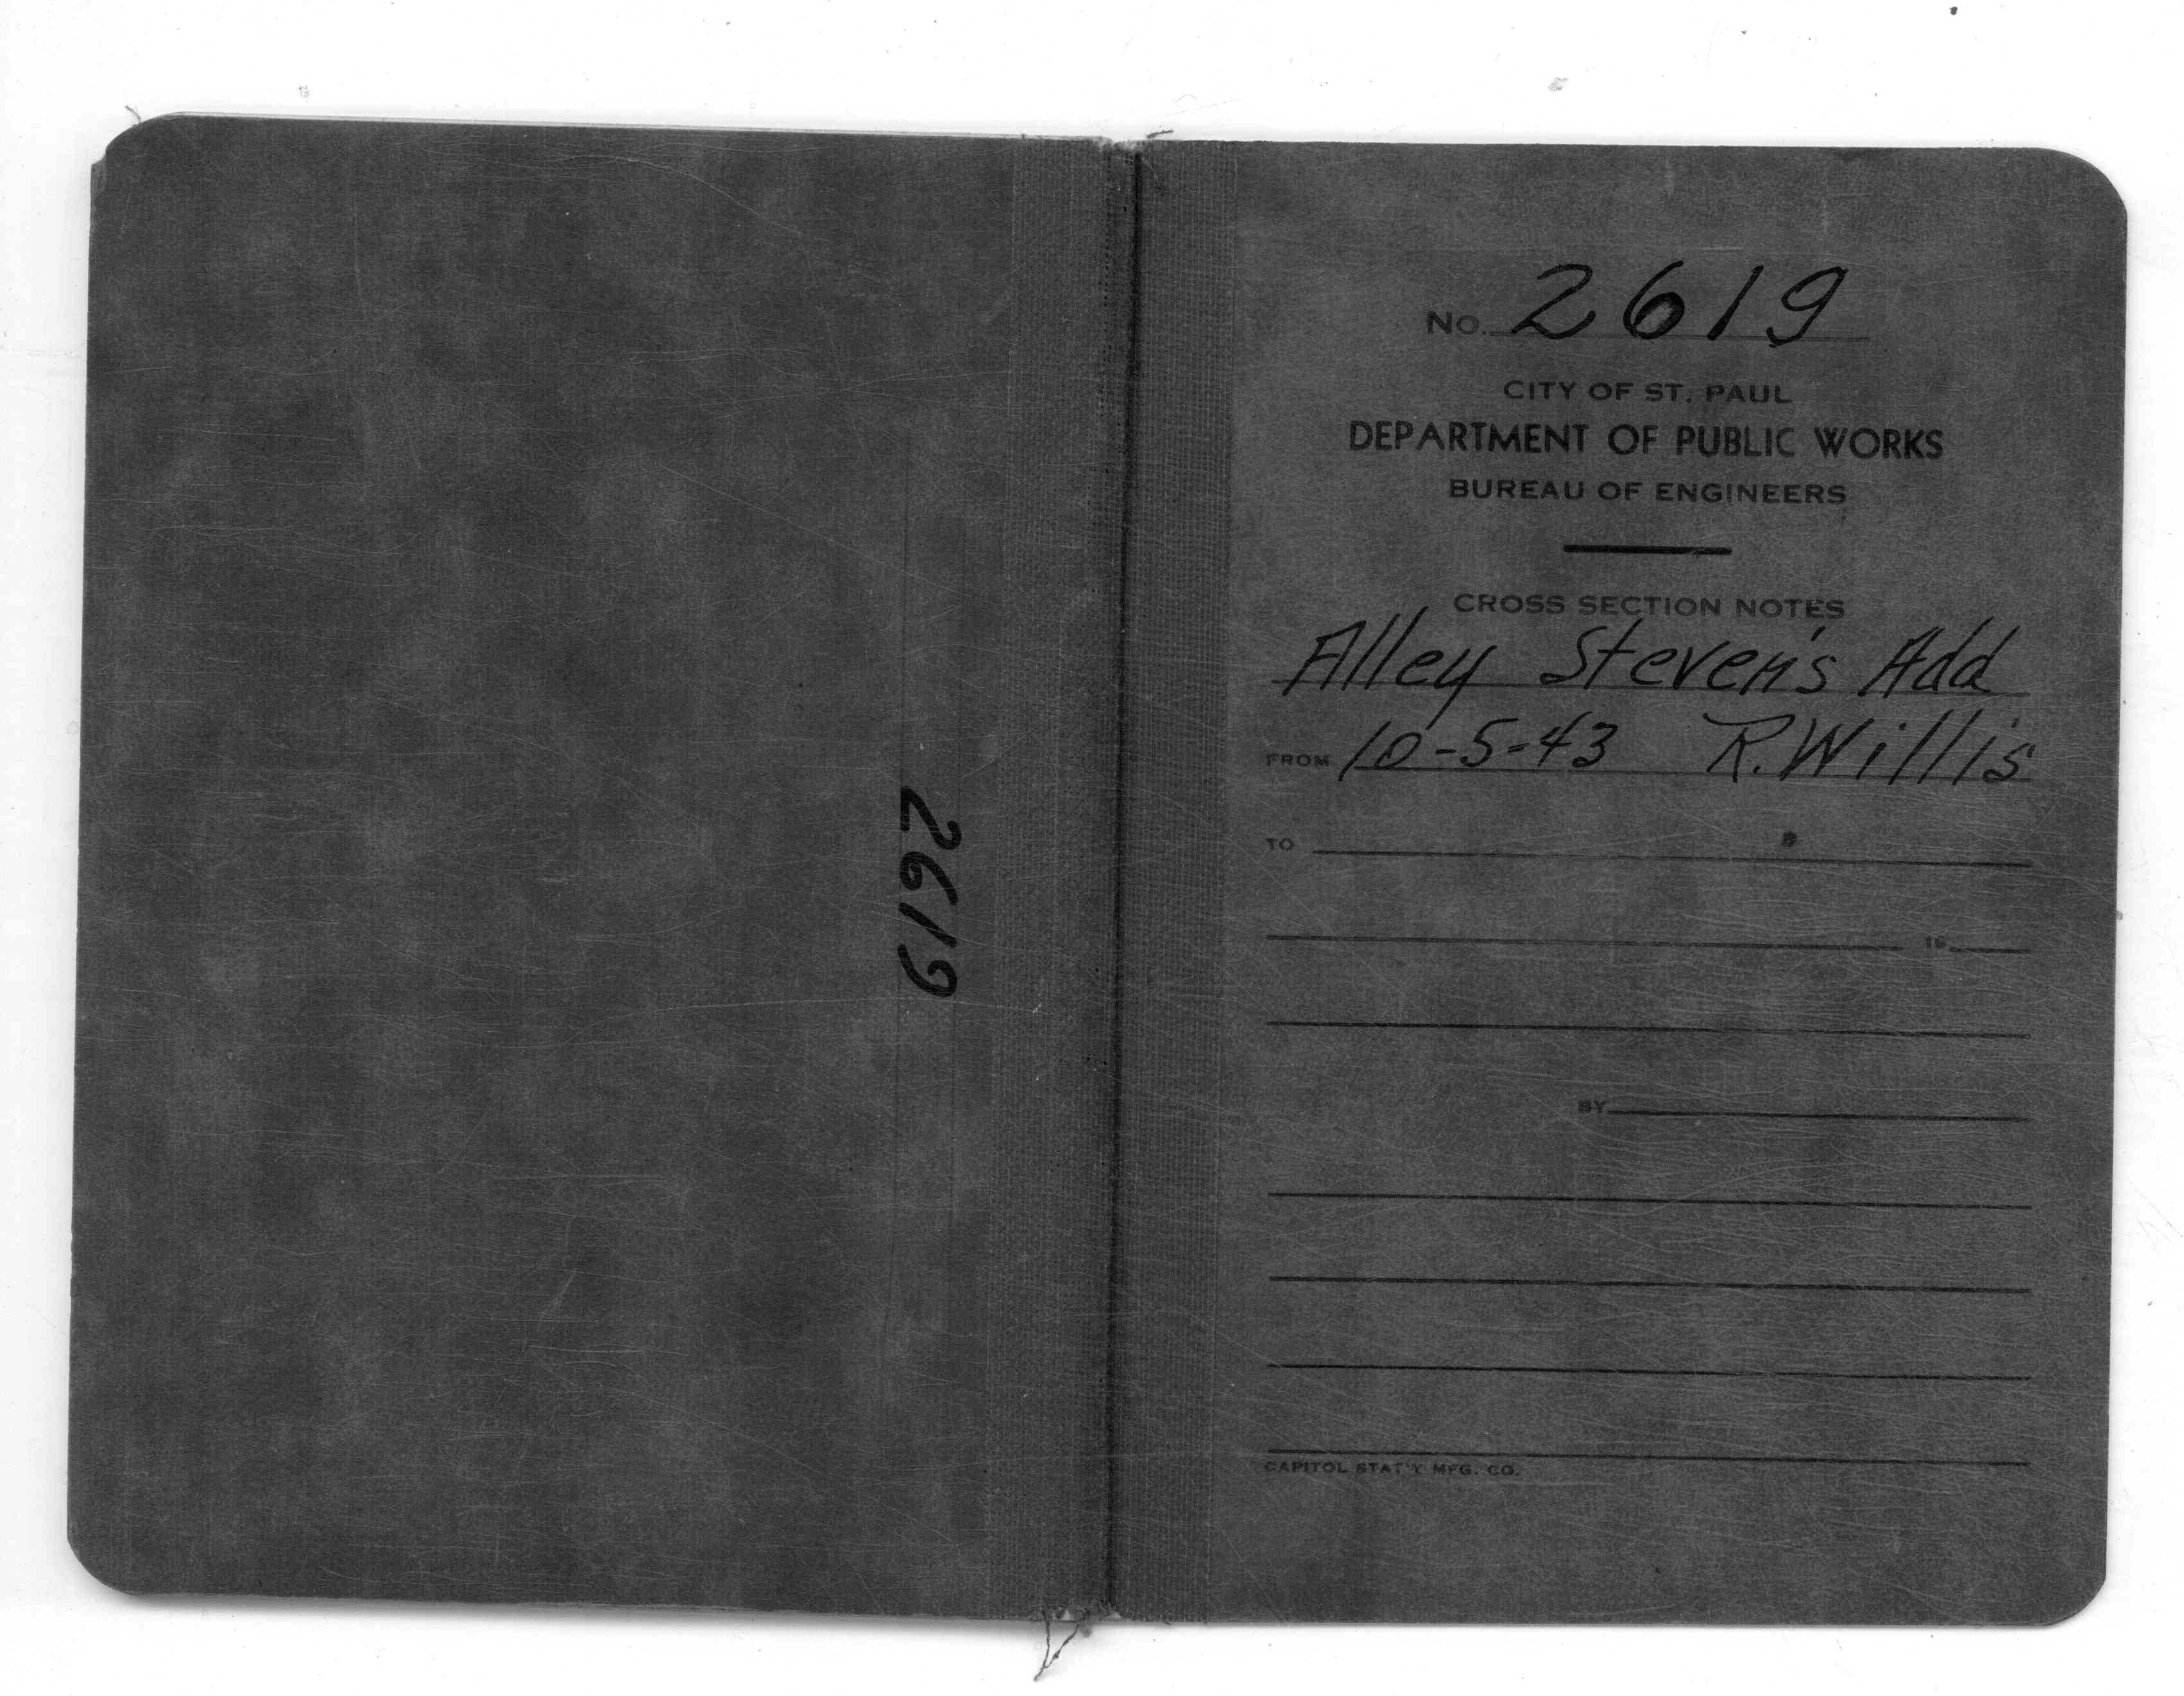 2619
No. 2619
CITY OF ST. PAUL
DEPARTMENT OF PUBLIC WORKS
BUREAU OF ENGINEERS
CROSS SECTION NOTES
Alley Steven's Add
FROM 10-5-43 R. Willis
TO
19
BY
CAPITOL STAT'Y MFG. CO.